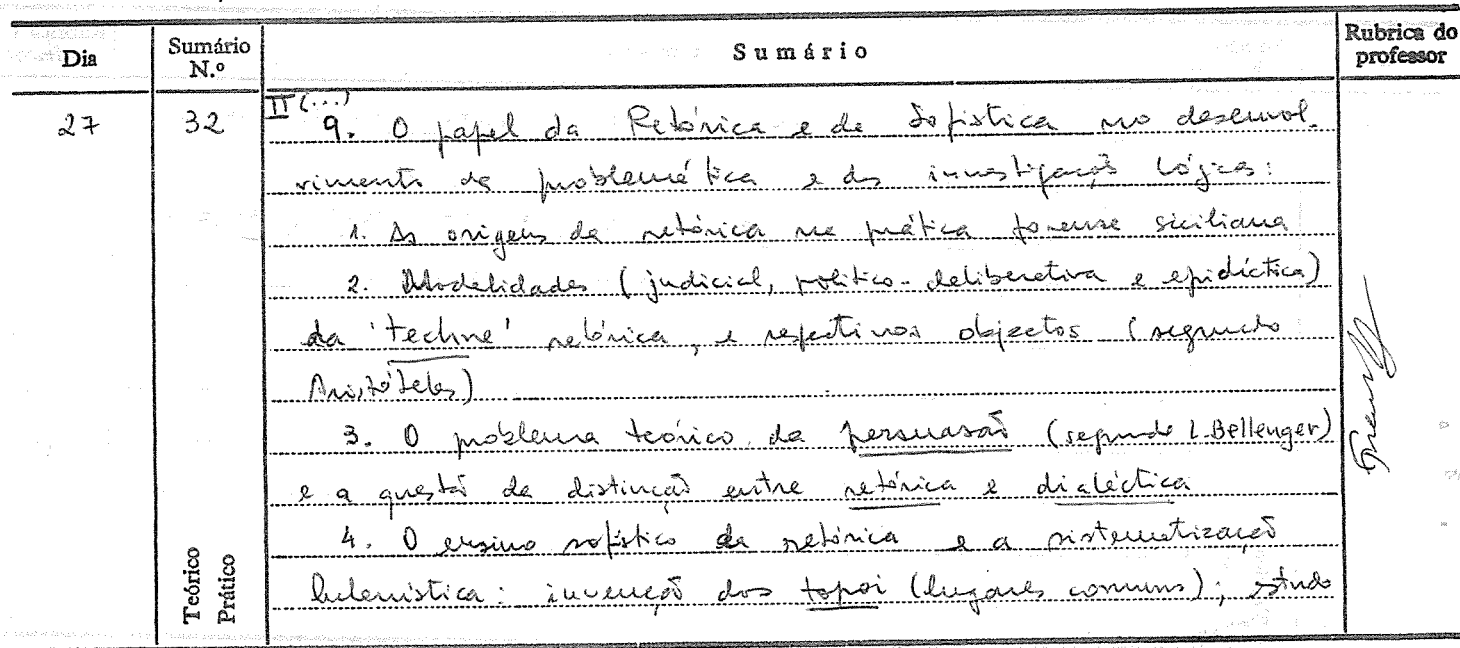 Dia
Sumário N.º
Sumário
Rubrica do professor
27
32
II (...)
9. O papel da Retórica e da Sofística no desenvol-
vimento da problemática e da investigação lógica:
1. As origens da retórica na prática forense siciliana
2. Modalidades (judicial, político-deliberativa e epidíctica)
da 'techne' retórica, e respectivos objectos (segundo
Aristóteles)
3. O problema teórico da persuasão (segundo L. Bellenger)
e a questão da distinção entre retórica e dialéctica
4. O ensino sofístico da retórica e a sistematização
helenística: invenção dos topoi (lugares comuns); estudo
Teórico
Prático